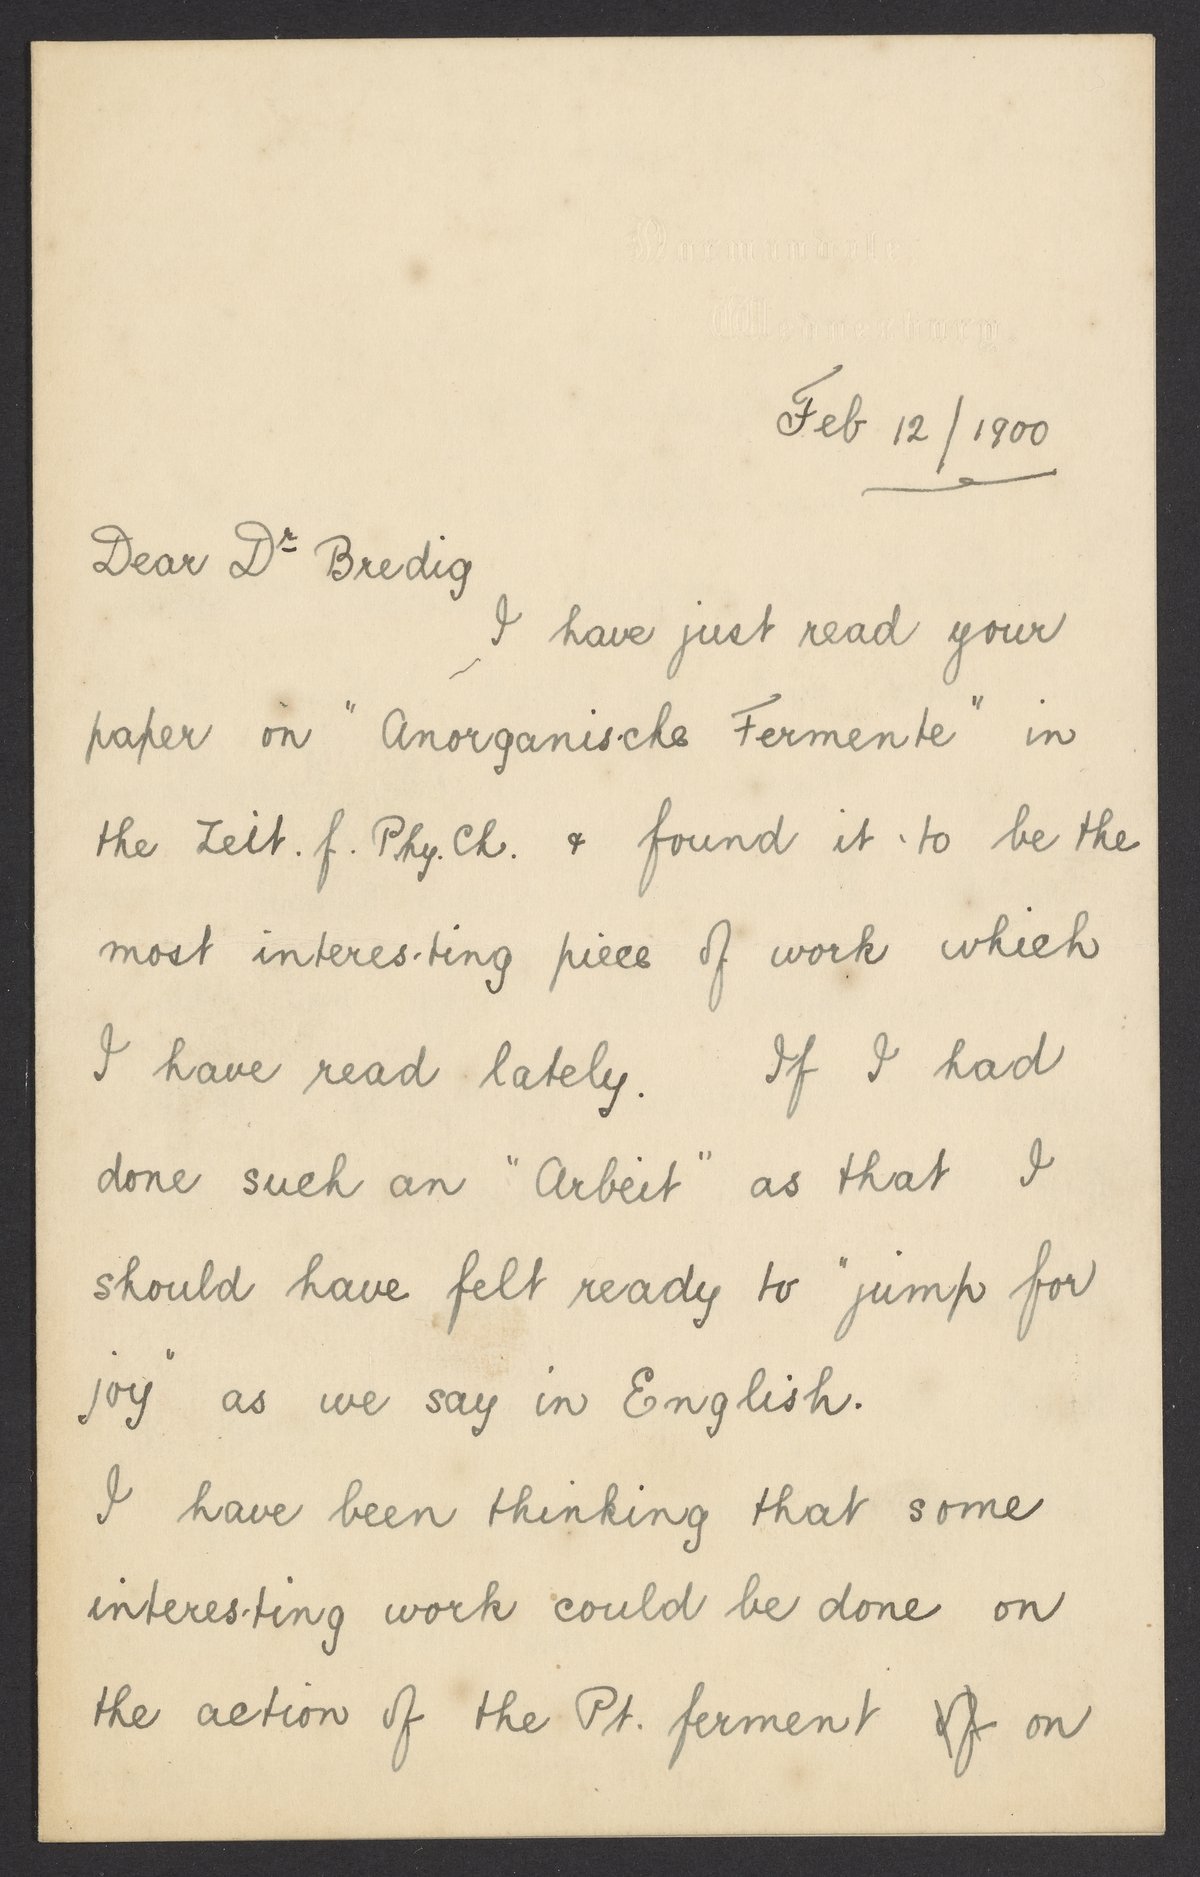 Normandale,
Wednesbury.
Feb 12/1900
Dear Dr Bredig
I have just read your
paper on "Anorganische Fermente" in
the Zeit. f. Phy. Ch. & found it to be the
most interesting piece of work which
I have read lately. If I had
done such an "Arbeit" as that I
should have felt ready to "jump for
joy" as we say in English.
I have been thinking that some
interesting work could be done on
the action of the Pt. ferment of on